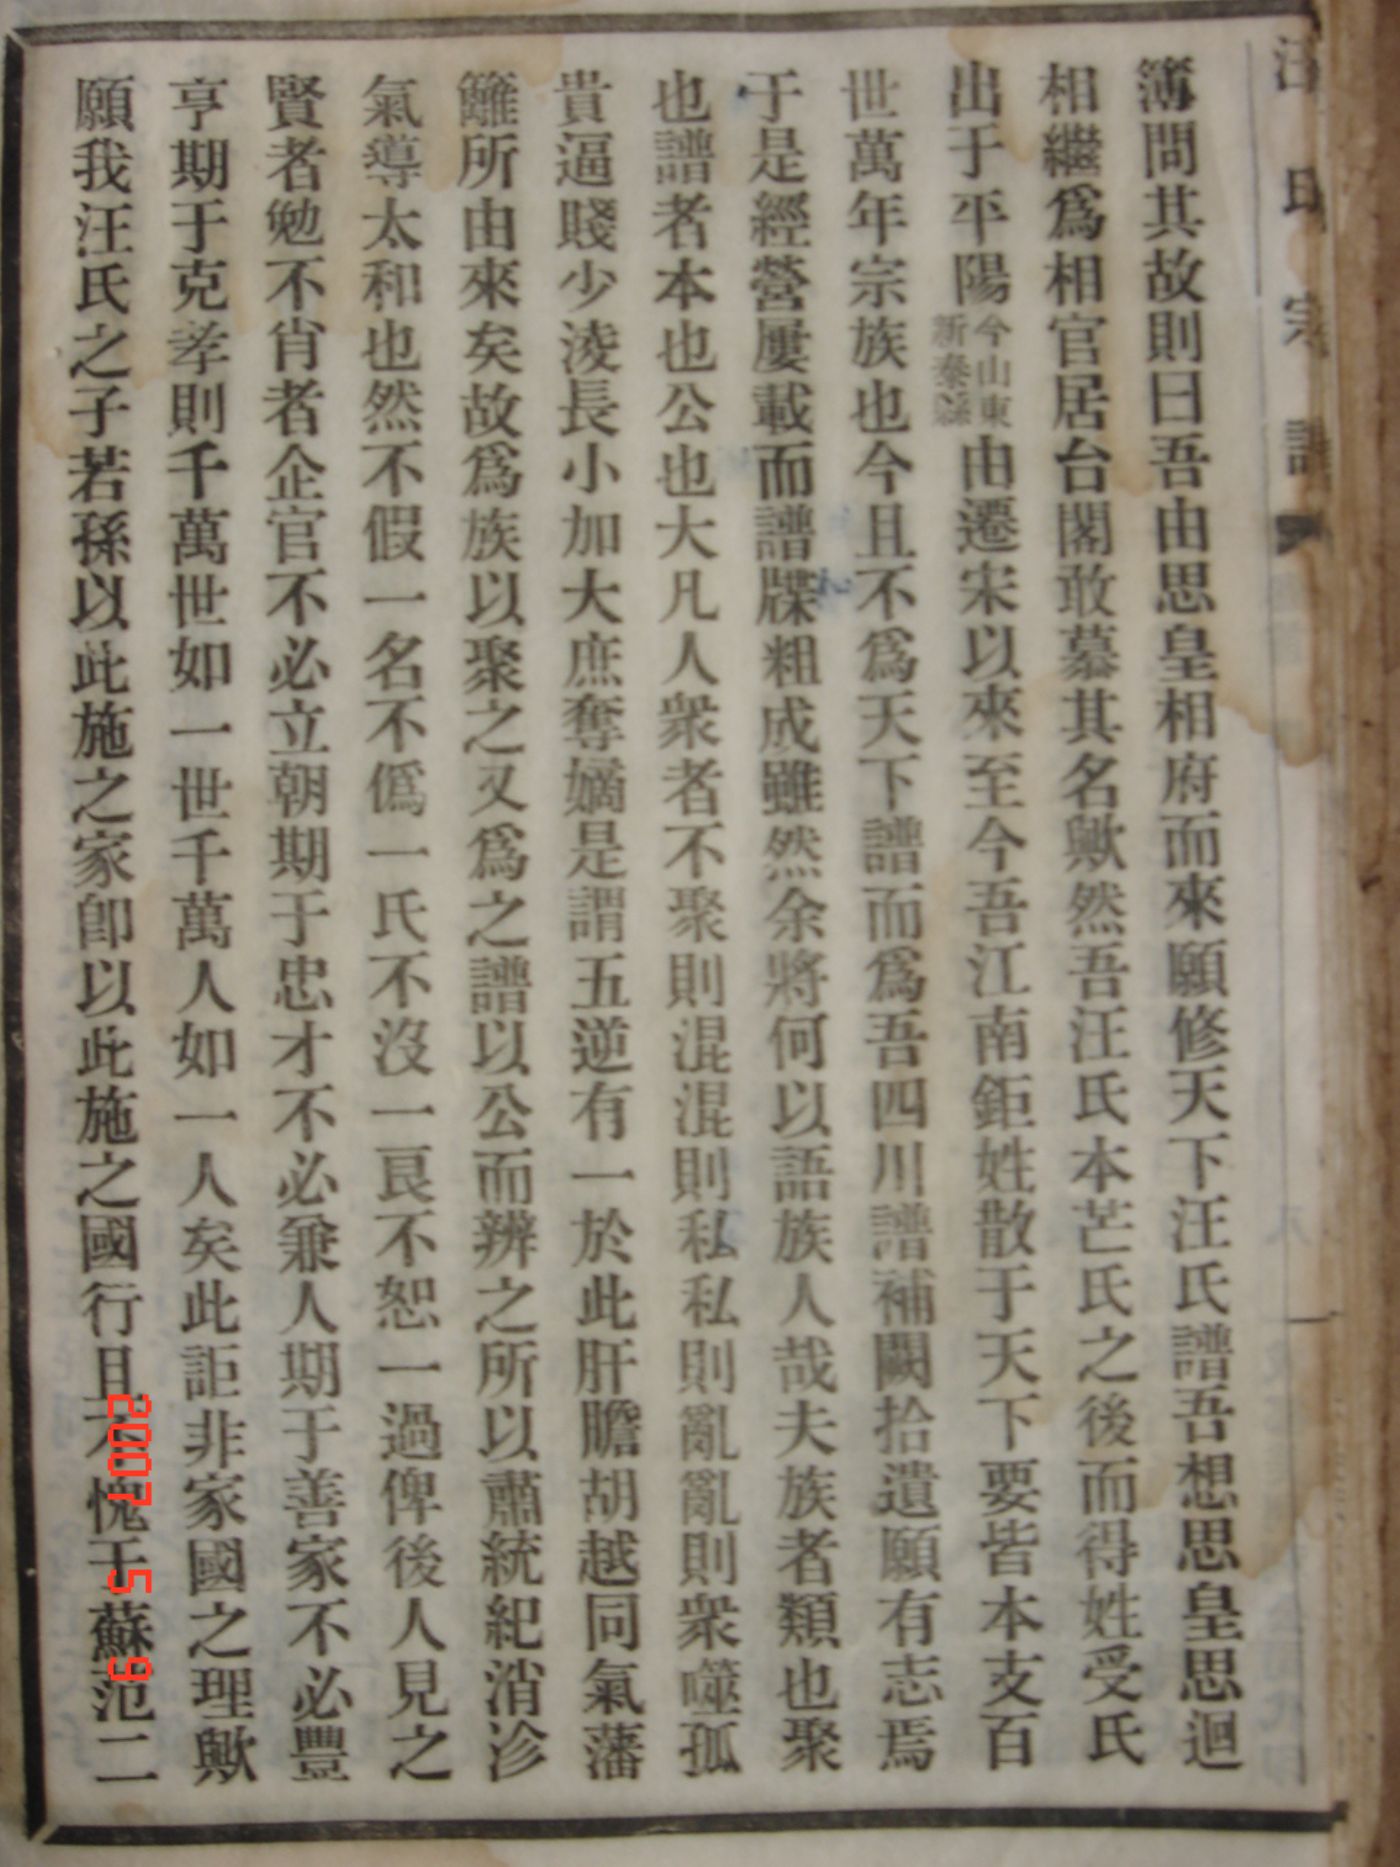 汪氏宗譜
簿問其故則曰吾由思皇相府而來願修天下汪氏譜吾想思皇思迴
相繼爲相官居台閣敢慕其名歟然吾汪氏本芒氏之後而得姓受氏
出于平陽今山東新泰縣由遷宋以來至今吾江南鉅姓散于天下要皆本支百
世萬年宗族也今且不爲天下譜而爲吾四川譜補闕拾遺願有志焉
于是經營屢載而譜牒粗成雖然余將何以語族人哉夫族者類也聚
也譜者本也公也大凡人衆者不聚則混混則私私則亂亂則衆噬孤
貴逼賤少淩長小加大庶奪嫡是謂五逆有一於此肝膽胡越同氣藩
籬所由來矣故爲族以聚之又爲之譜以公而辨之所以肅統紀消沴
氣導太和也然不假一名不僞一氏不沒一良不恕一過俾後人見之
賢者勉不肖者企官不必立朝期于忠才不必兼人期于善家不必豐
亨期于克孝則千萬世如一世千萬人如一人矣此詎非家國之理歟
願我汪氏之子若孫以此施之家卽以此施之國行且不愧于蘇范二
2007 5 9